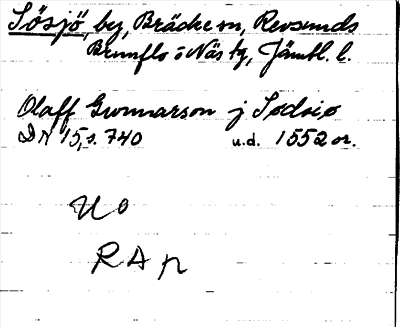 Sösjö, by, Bräcke sn, Revsunds
Brunflo o Näs tg, Jämtl. l.
Olaff Gunnarson j Sødsiø
DN 15, s. 740 u.d. 1552 or.
U o
R A p